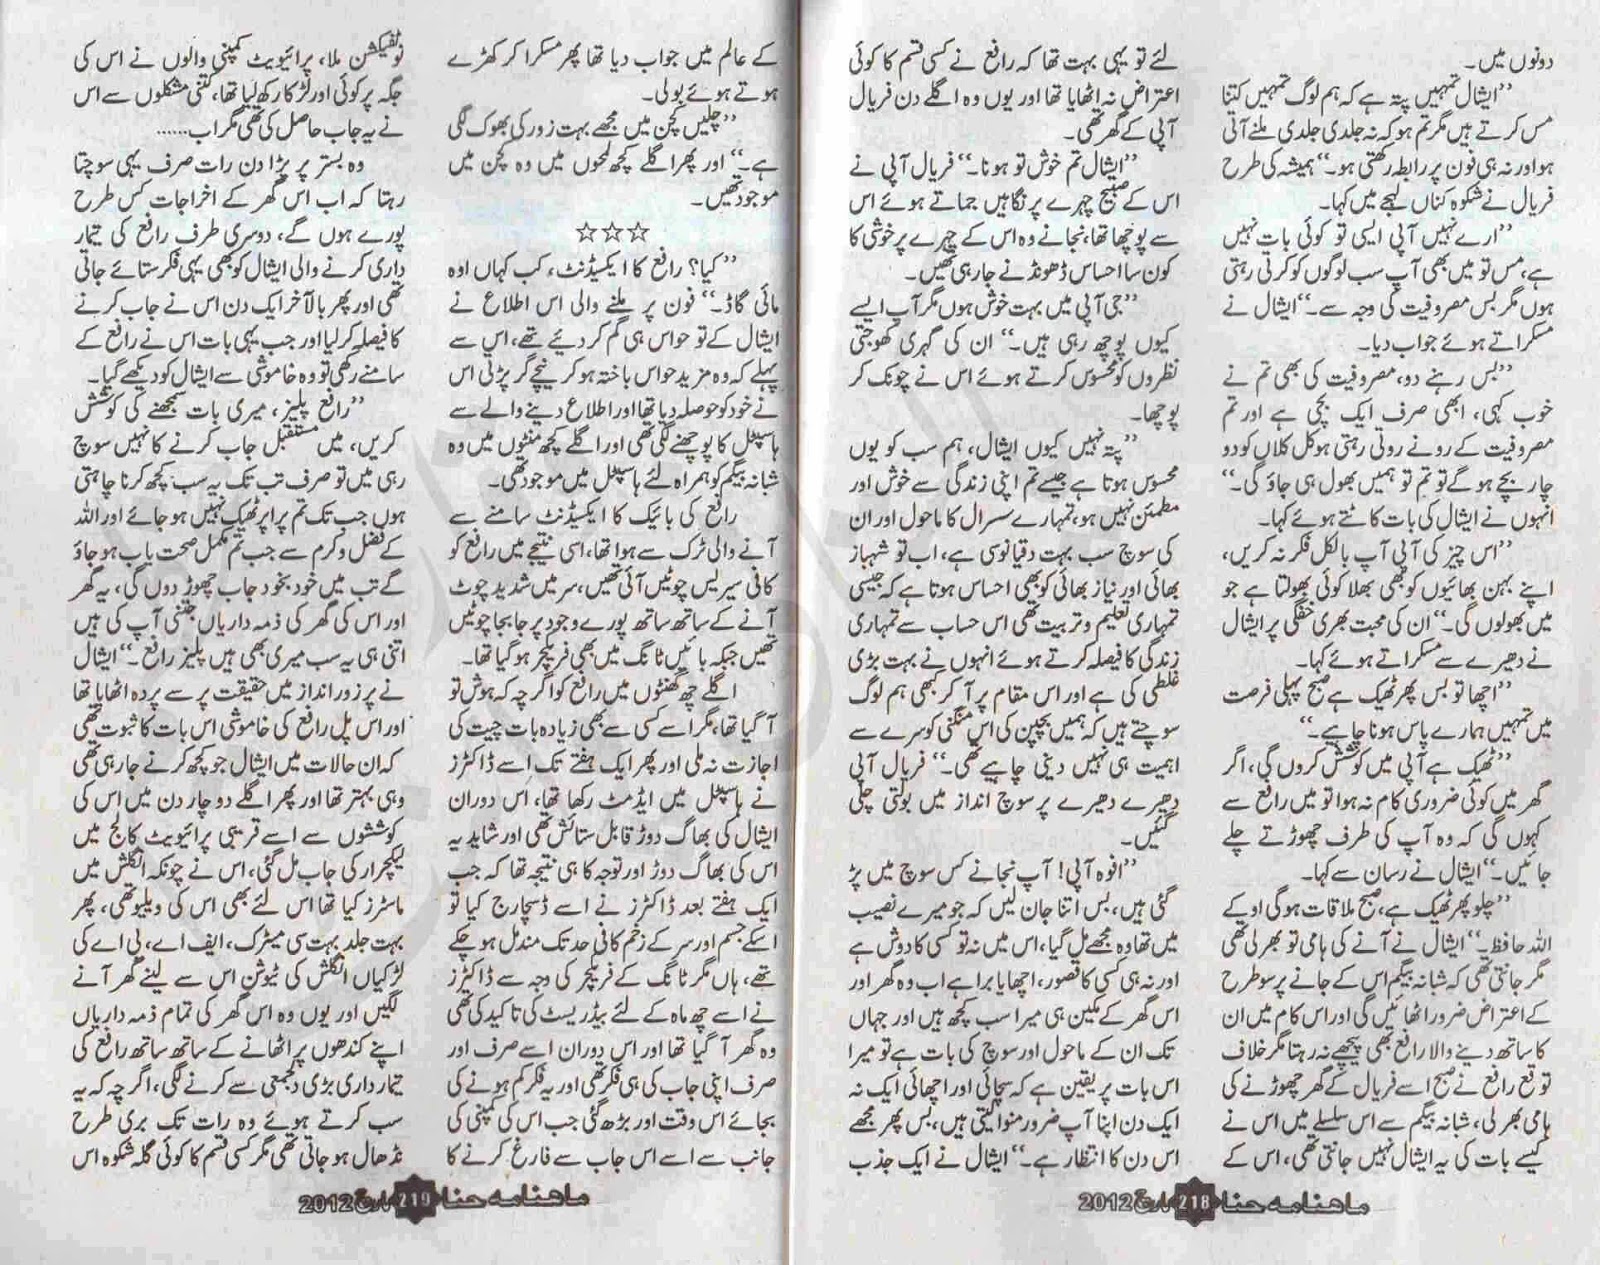 دونوں میں۔
’’ایشال تمہیں پتہ ہے کہ ہم لوگ تمہیں کتنا
مس کرتے ہیں مگر تم ہو کہ نہ جلدی جلدی ملنے آتی
ہو اور نہ ہی فون پر رابطہ رکھتی ہو۔‘‘ ہمیشہ کی طرح
فریال نے شکوہ کناں لہجے میں کہا۔
’’ارے نہیں آپی ایسی تو کوئی بات نہیں
ہے، مس تو میں بھی آپ سب لوگوں کو کرتی رہتی
ہوں مگر بس مصروفیت کی وجہ سے۔‘‘ ایشال نے
مسکراتے ہوئے جواب دیا۔
’’بس رہنے دو، مصروفیت کی بھی تم نے
خوب کہی، ابھی صرف ایک بچی ہے اور تم
مصروفیت کے رونے روتی رہتی ہو کل کلاں کو دو
چار بچے ہو گے تو تم تو ہمیں بھول ہی جاؤ گی۔‘‘
انہوں نے ایشال کی بات کاٹتے ہوئے کہا۔
’’اس چیز کی آپی آپ بالکل فکر نہ کریں،
اپنے بہن بھائیوں کو بھی بھلا کوئی بھولتا ہے جو
میں بھولوں گی۔‘‘ ان کی محبت بھری خفگی پر ایشال
نے دھیرے سے مسکراتے ہوئے کہا۔
’’اچھا تو بس پھر ٹھیک ہے صبح پہلی فرصت
میں تمہیں ہمارے پاس ہونا چاہیے۔‘‘
’’ٹھیک ہے آپی میں کوشش کروں گی، اگر
گھر میں کوئی ضروری کام نہ ہوا تو میں رافع سے
کہوں گی کہ وہ آپ کی طرف چھوڑتے چلے
جائیں۔‘‘ ایشال نے رسان سے کہا۔
’’چلو پھر ٹھیک ہے، صبح ملاقات ہو گی اوکے
اللہ حافظ۔‘‘ ایشال نے آنے کی ہامی تو بھر لی تھی
مگر جانتی تھی کہ شبانہ بیگم اس کے جانے پر سو طرح
کے اعتراض ضرور اٹھائیں گی اور اس کام میں ان
کا ساتھ دینے والا رافع بھی پیچھے نہ رہتا مگر خلاف
توقع رافع نے صبح اسے فریال کے گھر چھوڑنے کی
ہامی بھر لی، شبانہ بیگم سے اس سلسلے میں اس نے
کیسے بات کی یہ ایشال نہیں جانتی تھی، اس کے
لئے تو یہی بہت تھا کہ رافع نے کسی قسم کا کوئی
اعتراض نہ اٹھایا تھا اور یوں وہ اگلے دن فریال
آپی کے گھر تھی۔
’’ایشال تم خوش تو ہو نا۔‘‘ فریال آپی نے
اس کے صبیح چہرے پر نگاہیں جماتے ہوئے اس
سے پوچھا تھا، نجانے وہ اس کے چہرے پر خوشی کا
کون سا احساس ڈھونڈنے جا رہی تھیں۔
’’جی آپی میں بہت خوش ہوں مگر آپ ایسے
کیوں پوچھ رہی ہیں۔‘‘ ان کی گہری کھوجتی
نظروں کو محسوس کرتے ہوئے اس نے چونک کر
پوچھا۔
’’پتہ نہیں کیوں ایشال، ہم سب کو یوں
محسوس ہوتا ہے جیسے تم اپنی زندگی سے خوش اور
مطمئن نہیں ہو، تمہارے سسرال کا ماحول اور ان
کی سوچ سب بہت دقیانوسی ہے، اب تو شہباز
بھائی اور نیاز بھائی کو بھی احساس ہوتا ہے کہ جیسی
تمہاری تعلیم و تربیت تھی اس حساب سے تمہاری
زندگی کا فیصلہ کرتے ہوئے انہوں نے بہت بڑی
غلطی کی ہے اور اس مقام پر آ کر کبھی ہم لوگ
سوچتے ہیں کہ ہمیں بچپن کی اس منگنی کو سرے سے
اہمیت ہی نہیں دینی چاہیے تھی۔‘‘ فریال آپی
دھیرے دھیرے پرسوچ انداز میں بولتی چلی
گئیں۔
’’افوہ آپی! آپ نجانے کس سوچ میں پڑ
گئی ہیں، بس اتنا جان لیں کہ جو میرے نصیب
میں تھا وہ مجھے مل گیا، اس میں نہ تو کسی کا دوش ہے
اور نہ ہی کسی کا قصور، اچھا یا برا ہے اب وہ گھر اور
اس گھر کے مکین ہی میرا سب کچھ ہیں اور جہاں
تک ان کے ماحول اور سوچ کی بات ہے تو میرا
اس بات پر یقین ہے کہ سچائی اور اچھائی ایک نہ
ایک دن اپنا آپ ضرور منوا لیتی ہیں، بس پھر مجھے
اس دن کا انتظار ہے۔‘‘ ایشال نے ایک جذب
ماہنامہ حنا 218 مارچ 2012
کے عالم میں جواب دیا تھا پھر مسکرا کر کھڑے
ہوتے ہوئے بولی۔
’’چلیں کچن میں مجھے بہت زور کی بھوک لگی
ہے۔‘‘ اور پھر اگلے کچھ لمحوں میں وہ کچن میں
موجود تھیں۔
☆☆☆
’’کیا؟ رافع کا ایکسیڈنٹ، کب کہاں اوہ
مائی گاڈ۔‘‘ فون پر ملنے والی اس اطلاع نے
ایشال کے تو حواس ہی گم کر دیئے تھے، اس سے
پہلے کہ وہ مزید حواس باختہ ہو کر نیچے گر پڑتی اس
نے خود کو حوصلہ دیا تھا اور اطلاع دینے والے سے
ہاسپٹل کا پوچھنے لگی تھی اور اگلے کچھ منٹوں میں وہ
شبانہ بیگم کو ہمراہ لئے ہاسپٹل میں موجود تھی۔
رافع کی بائیک کا ایکسیڈنٹ سامنے سے
آنے والی ٹرک سے ہوا تھا، اسی نتیجے میں رافع کو
کافی سیریس چوٹیں آئی تھیں، سر میں شدید چوٹ
آنے کے ساتھ ساتھ پورے وجود پر جا بجا چوٹیں
تھیں جبکہ بائیں ٹانگ میں بھی فریکچر ہو گیا تھا۔
اگلے چھ گھنٹوں میں رافع کو اگرچہ کہ ہوش تو
آ گیا تھا، مگر اسے کسی سے بھی زیادہ بات چیت کی
اجازت نہ ملی اور پھر ایک ہفتے تک اسے ڈاکٹرز
نے ہاسپٹل میں ایڈمٹ رکھا تھا، اس دوران
ایشال کی بھاگ دوڑ قابل ستائش تھی اور شاید یہ
اس کی بھاگ دوڑ اور توجہ کا ہی نتیجہ تھا کہ جب
ایک ہفتے بعد ڈاکٹرز نے اسے ڈسچارج کیا تو
اسکے جسم اور سر کے زخم کافی حد تک مندمل ہو چکے
تھے، ہاں مگر ٹانگ کے فریکچر کی وجہ سے ڈاکٹرز
نے اسے چھ ماہ کے لئے بیڈ ریسٹ کی تاکید کی تھی
وہ گھر آ گیا تھا اور اس دوران اسے صرف اور
صرف اپنی جاب کی ہی فکر تھی اور یہ فکر کم ہونے کی
بجائے اس وقت اور بڑھ گئی جب اس کی کمپنی کی
جانب سے اسے اس جاب سے فارغ کرنے کا
نوٹیفکیشن ملا، پرائیویٹ کمپنی والوں نے اس کی
جگہ پر کوئی اور لڑکا رکھ لیا تھا، کتنی مشکلوں سے اس
نے یہ جاب حاصل کی تھی مگر اب......
وہ بستر پر پڑا دن رات صرف یہی سوچتا
رہتا کہ اب اس گھر کے اخراجات کس طرح
پورے ہوں گے، دوسری طرف رافع کی تیمار
داری کرنے والی ایشال کو بھی یہی فکر ستائے جاتی
تھی اور پھر بالآخر ایک دن اس نے جاب کرنے
کا فیصلہ کر لیا اور جب یہی بات اس نے رافع کے
سامنے رکھی تو وہ خاموشی سے ایشال کو دیکھے گیا۔
’’رافع پلیز، میری بات سمجھنے کی کوشش
کریں، میں مستقبل جاب کرنے کا نہیں سوچ
رہی میں تو صرف تب تک یہ سب کچھ کرنا چاہتی
ہوں جب تک تم پراپر ٹھیک نہیں ہو جاتے اور اللہ
کے فضل و کرم سے جب تم مکمل صحت یاب ہو جاؤ
گے تب میں خود بخود جاب چھوڑ دوں گی، یہ گھر
اور اس کی گھر کی ذمہ داریاں جتنی آپ کی ہیں
اتنی ہی یہ سب میری بھی ہیں پلیز رافع۔‘‘ ایشال
نے پر زور انداز میں حقیقت پر سے پردہ اٹھایا تھا
اور اس پل رافع کی خاموشی اس بات کا ثبوت تھی
کہ ان حالات میں ایشال جو کچھ کرنے جا رہی تھی
وہی بہتر تھا اور پھر اگلے دو چار دن میں اس کی
کوششوں سے اسے قریبی پرائیویٹ کالج میں
لیکچرار کی جاب مل گئی، اس نے چونکہ انگلش میں
ماسٹرز کیا تھا اس لئے بھی اس کی ویلیو تھی، پھر
بہت جلد بہت سی میٹرک، ایف اے، بی اے کی
لڑکیاں انگلش کی ٹیوشن اس سے لینے گھر آنے
لگیں اور یوں وہ اس گھر کی تمام ذمہ داریاں
اپنے کندھوں پر اٹھانے کے ساتھ ساتھ رافع کی
تیمارداری بڑی دلجمعی سے کرنے لگی، اگرچہ کہ یہ
سب کرتے ہوئے وہ رات تک بری طرح
نڈھال ہو جاتی تھی مگر کسی قسم کا کوئی گلہ شکوہ اس
ماہنامہ حنا 219 مارچ 2012